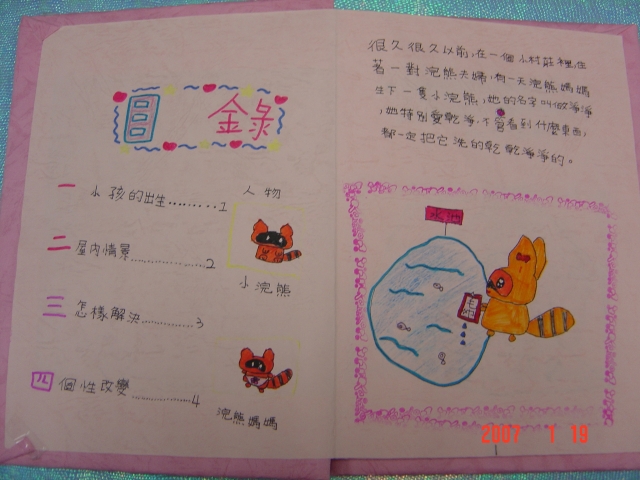 目錄
一 小孩的出生.........1
二 屋內情景..................2
三 怎樣解決..............3
四 個性改變...............4
人物
小浣熊
浣熊媽媽
很久很久以前,在一個小村莊裡,住
著一對浣熊夫婦,有一天浣熊媽媽
生下一隻小浣熊,她的名字叫做淨淨
,她特別愛乾淨,不管看到什麼東西,
都一定把它洗的乾乾淨淨的。
2007 1 19